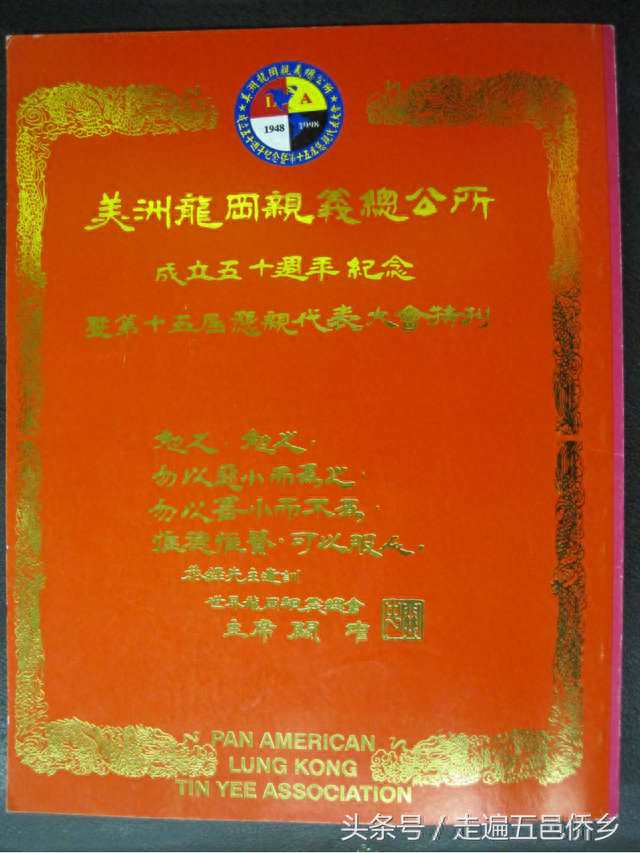 美洲龍岡親義總公所
L A
1948 1998
美洲龍岡親義總公所
成立五十週年紀念
暨第十五屆懇親代表大會特刊
勉之．勉之．
勿以惡小而為之．
勿以善小而不為．
惟德惟賢．可以服人．
恭錄先主遺訓
世界龍岡親義總會
主席 關
PAN AMERICAN
LUNG KONG
TIN YEE ASSOCIATION
头条号 / 走遍五邑侨乡